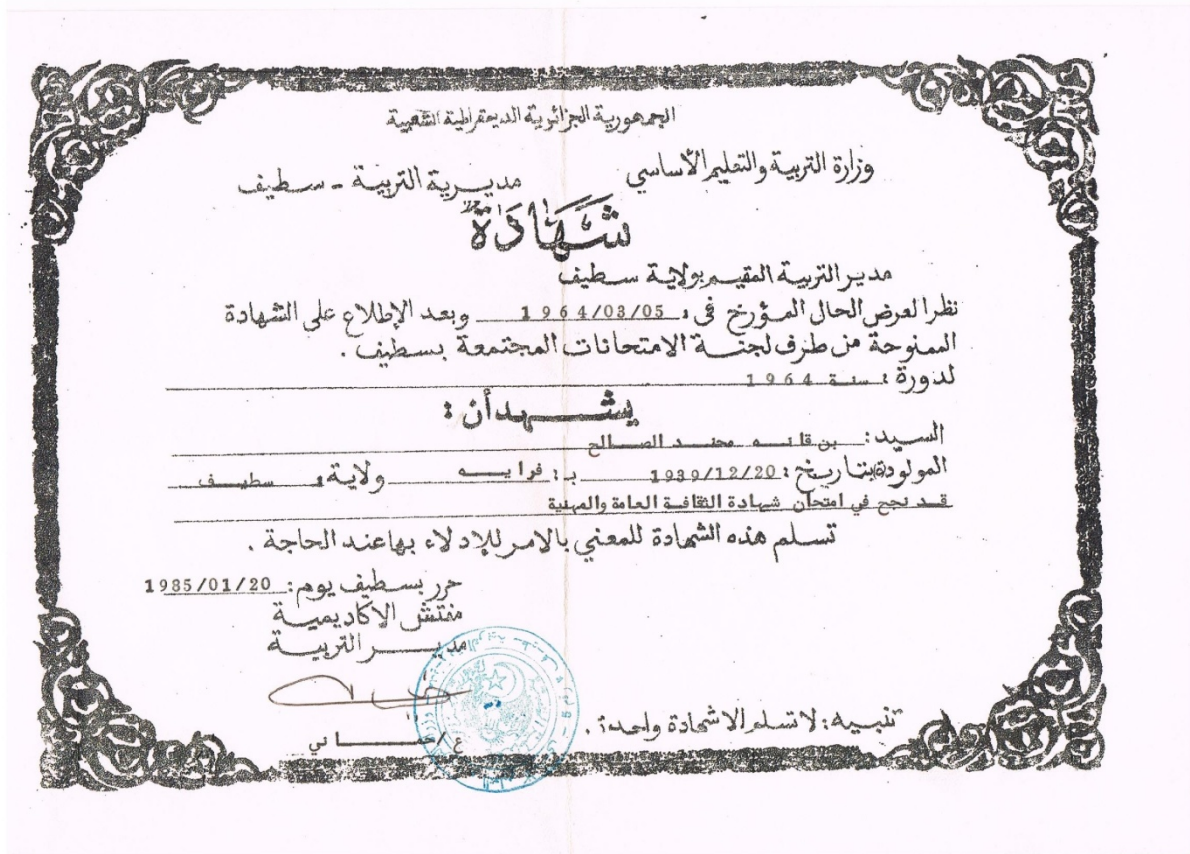 الجمهورية الجزائرية الديمقراطية الشعبية
وزارة التربية والتعليم الأساسي
مديرية التربية - سطيف
شَهَادَة
مدير التربية المقيم بولاية سطيف
نظرا لعرض الحال المؤرخ في : 1964/03/05 وبعد الإطلاع على الشهادة
الممنوحة من طرف لجنة الامتحانات المجتمعة بسطيف .
لدورة : سنة 1964
يشهد أن :
السيد : بن قانه محمد الصالح
المولود(ة) بتاريخ : 1939/12/20 بـ : فرايه ولاية : سطيف
قد نجح في امتحان شهادة الثقافة العامة والمهنية
تسلم هذه الشهادة للمعني بالامر للإدلاء بها عند الحاجة .
حرر بسطيف يوم : 1985/01/20
مفتش الاكاديمية
مدير التربية
تنبيه : لا تسلم الا شهادة واحدة .